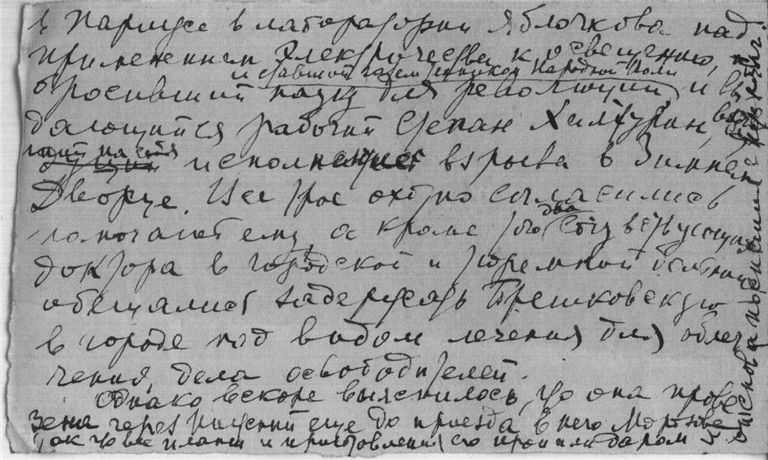 в Париже в лаборатории Яблочкова над
применением электричества к освещению,
и ставший членом Народной Воли
бросивший науку для революции и вы
дающийся рабочий Степан Халтурин, взяв
ший на себя исполнение взрыва в Зимнем
Дворце. Все трое охотно согласились
помогать ему, а кроме того два сочувствующих
доктора в городской и тюремной больнице
обещались задержать Брешковскую
в городе под видом лечения для облег
чения дела освободителей.
Однако вскоре выяснилось, что она прове
зена через еще до приезда в него
так что все планы и приготовления его пропали даром